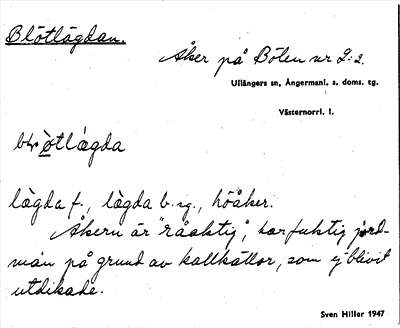 Blötlägdan.
Åker på Bölen nr 2:2.
Ullångers sn, Ångermanl. s. doms. tg.
Västernorrl. l.
lägda f., lägda b. sg., höåker.
Åkern är "råaktig", har fuktig jord-
mån på grund av kallkällor, som ej blivit
utdikade.
Sven Hiller 1947